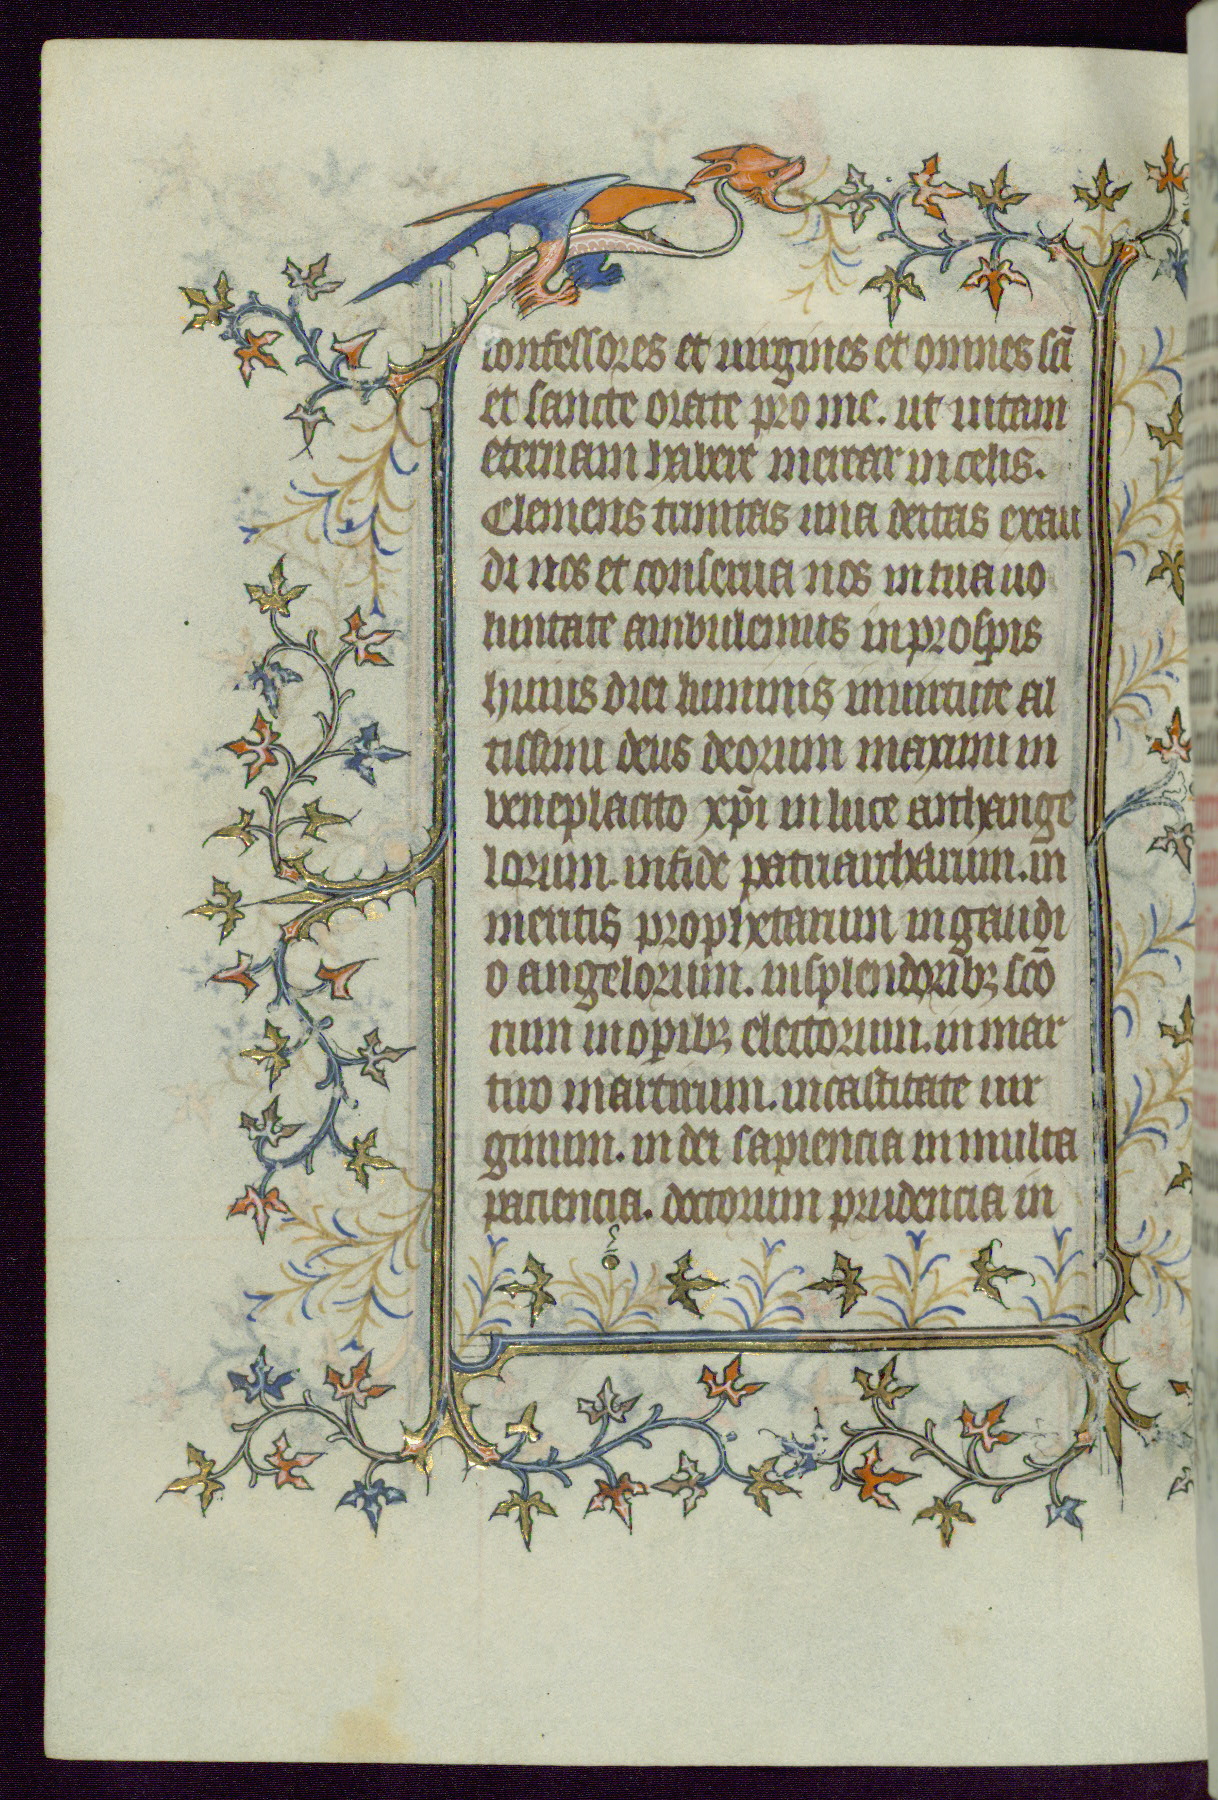 confessores et uirgines et omnes sci̅
et sancte orate pro me. ut uitam
eternam habere merear in celis.
Clemens trinitas una deitas exau
di nos et conserua nos in tua uo
luntate ambulemus in prosp̲is
huius diei luminis in uirtute al
tissimi deus deorum maximi in
beneplacito xp̅i in luce archange
lorum. in fide patriarcharum. in
meritis prophetarum in gaudi
o angelorum. in splendoribꝫ sco̅
rum in op̲ibꝫ electorum. in mar
tirio martirum. in castitate uir
ginum. in dei sapiencia in multa
paciencia. doctorum prudencia in